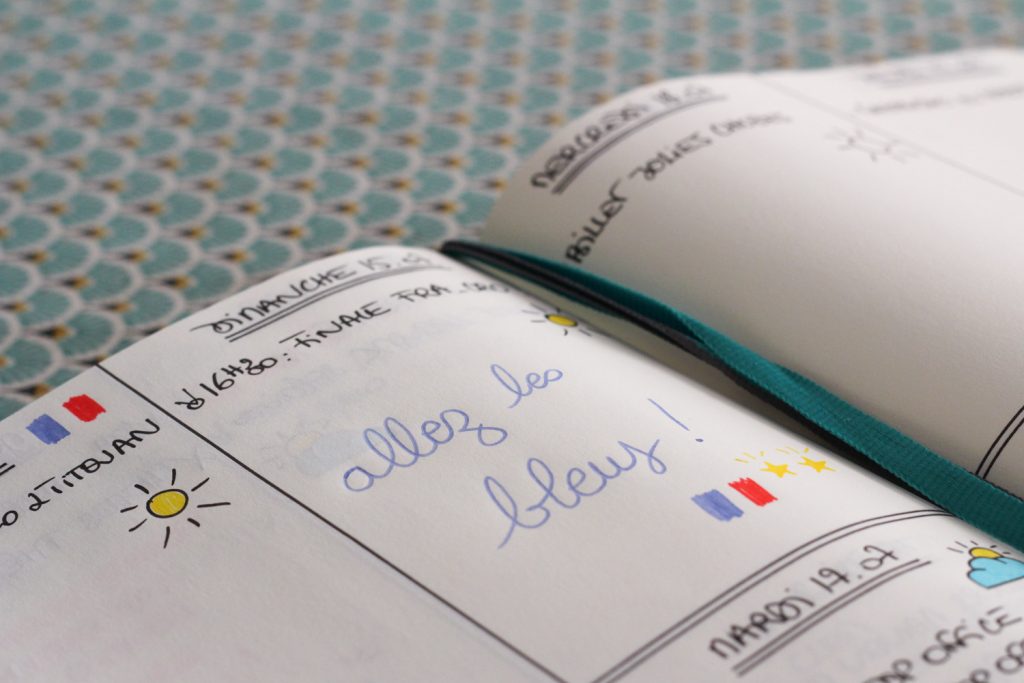 DIMANCHE 15.07
16H30 : FINALE FRA-CRO
allez les
bleus !
TITOUAN
MARDI 17.07
OFFICE
MERCREDI 18.07
JOLIES